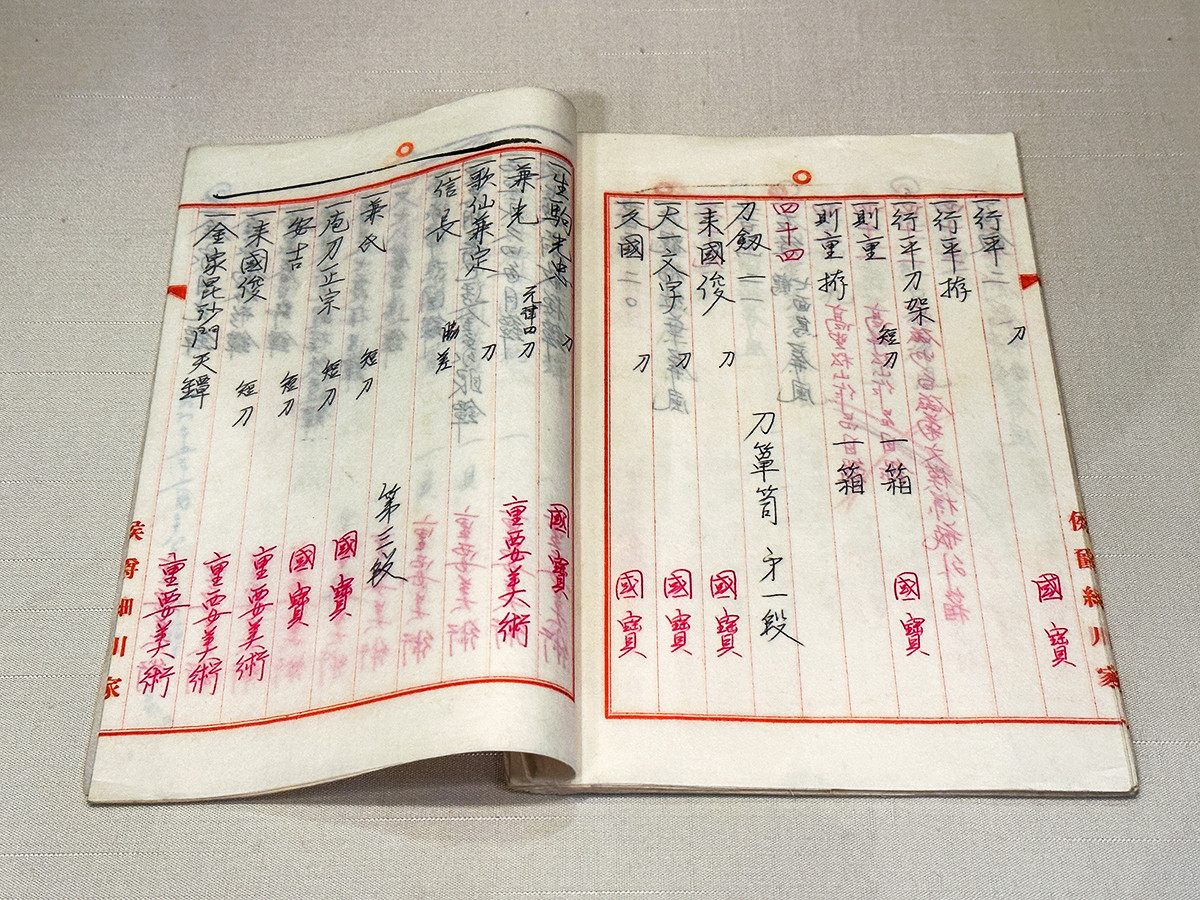 一行平二 刀 國寶
一行平拵
一行平刀架
一則重 短刀 一箱 國寶
一則重拵 一箱
四十四
刀劔 一一 刀簞笥 第一段
一来國俊 刀 國寶
一大一文字 刀 國寶
一文國二〇 刀 國寶
一生駒光忠 刀 國寶
一兼光 元津四刀 重要美術
一歌仙兼定 刀
一信長 脇差
第三段
一兼氏 短刀
一庖刀正宗 短刀 國寶
一安吉 短刀 國寶
一来國俊 短刀 重要美術
重要美術
一金家毘沙門天鐔 重要美術
侯爵細川家
侯爵細川家